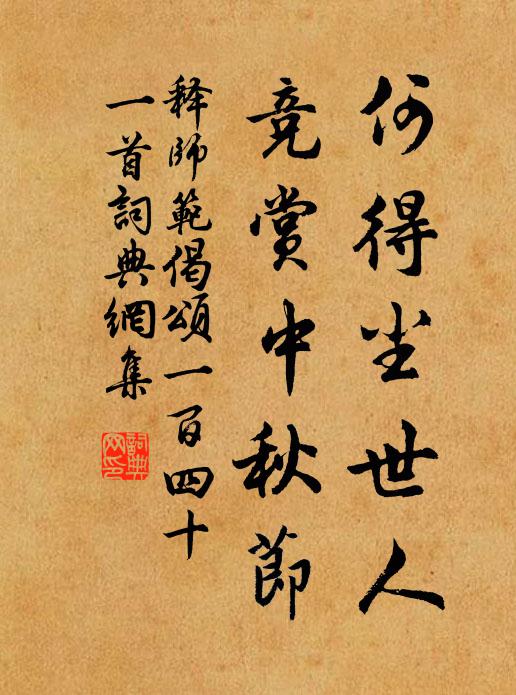 何得尘世人
竞賞中秋節
释師範偈頌一百四十
一首詞典網集
詞典
网印